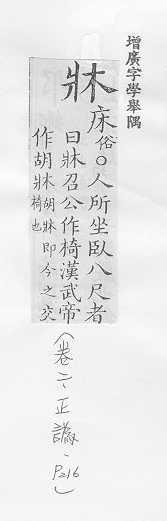 增廣字學舉隅
牀
床俗○人所坐臥八尺者
曰牀召公作椅漢武帝
作胡牀胡牀即今之交
椅也
(卷二、正譌、P216)